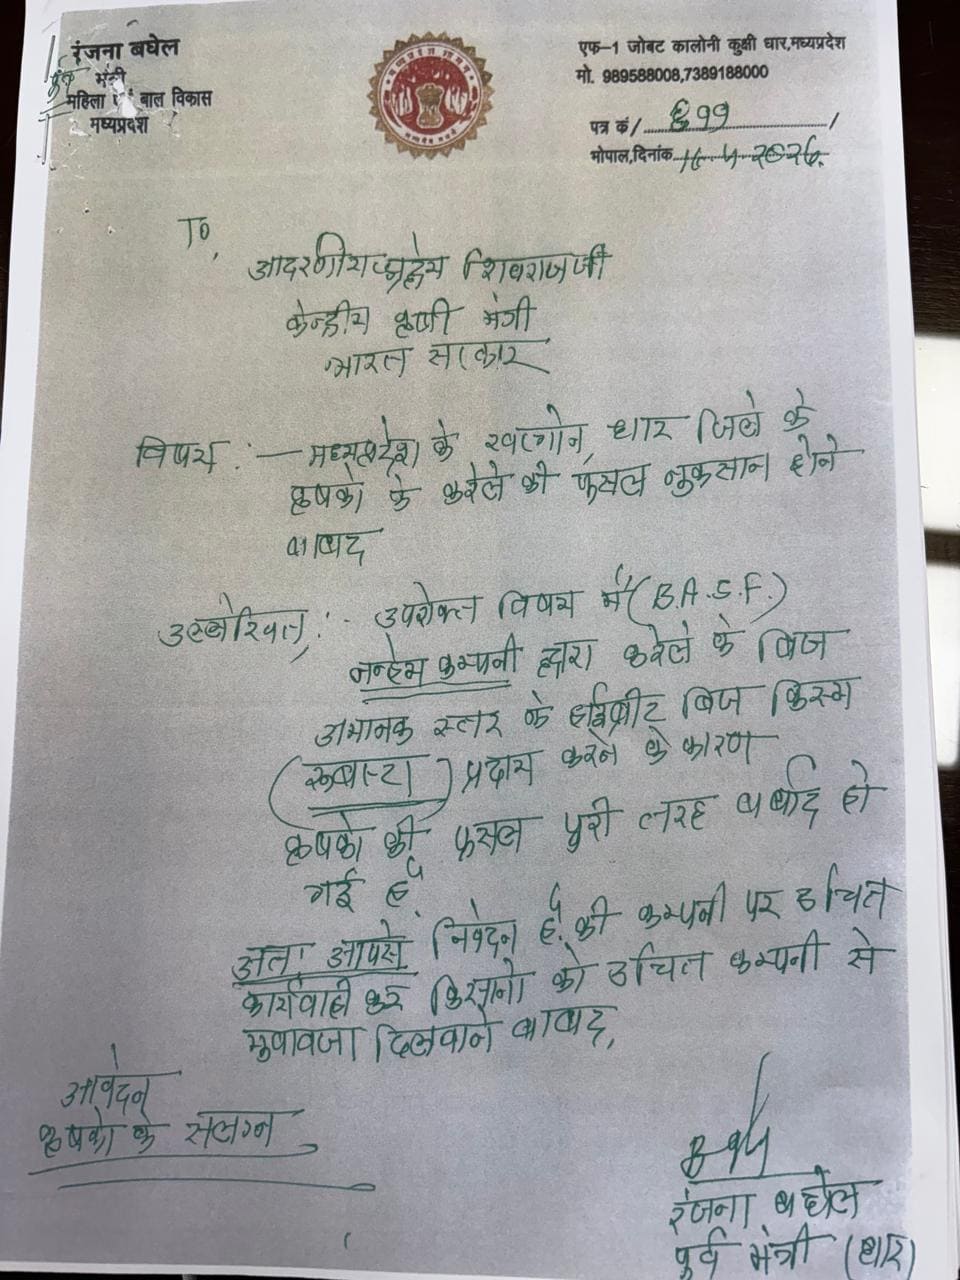 रंजना बघेल
पूर्व मंत्री
महिला एवं बाल विकास
मध्यप्रदेश
एफ-1 जोबट कालोनी कुक्षी धार,मध्यप्रदेश
मो. 989588008,7389188000
पत्र कं/ ६११ /
भोपाल,दिनांक 2026
To,
आदरणीय श्रद्धेय शिवराजजी
केन्द्रीय कृषी मंत्री
भारत सरकार
विषय :- मध्यप्रदेश के खरगोन, धार जिले के
कृषको के करेले की फसल नुकसान होने
बाबद
उल्लेखित,:- उपरोक्त विषय में (B.A.S.F.)
नन्हेम कम्पनी द्वारा करेले के बिज
अमानक स्तर के हाईब्रीट बिज किस्म
(रूबास्टा) प्रदाय करने के कारण
कृषको की फसल पुरी तरह बर्बाद हो
गई है.
अतः आपसे निवेदन है. की कम्पनी पर उचित
कार्यवाही कर किसानो को उचित कम्पनी से
मुवावजा दिलवाने बाबद,
आवेदन
कृषको के सलग्न
रंजना बघेल
पुर्व मंत्री (धार)